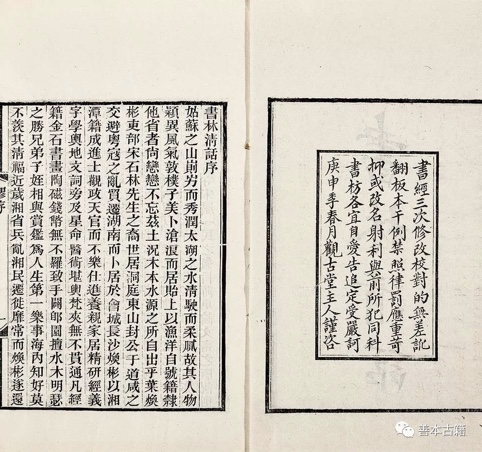 書經三次修改校對的無差訛
翻板本干例禁照律罰應重苛
抑或改名射利與前所犯同科
書坊各宜自愛告追定受嚴訶
庚申季春月觀古堂主人謹咨
書林清話序
姑蘇之山則劣而秀潤太湖之水清駛而柔膩故其人物
穎異風氣敦樸子美卜滄浪而居貽上以漁洋自號籍隸
他省者尚戀戀不忘茲土況木本水源之所自出乎葉煥
彬東部宋石林先生之裔世居洞庭東山封公于道咸之
交避粵寇之亂貿遷湖南而卜居於會城長沙煥彬以湘
潭籍成進士觀政天官而不樂仕進養親家居精研經義
字學輿地文詞旁及星命醫術堪輿梵夾無不貫通凡經
籍金石書畫陶磁錢幣無不羅致手闢郋園擅水木明瑟
之勝兄弟子姪相與賞鑑爲人生第一樂事海內知好莫
不羨其清福近歲湘省兵亂湘民遷徙靡常而煥彬遂還
善本古籍